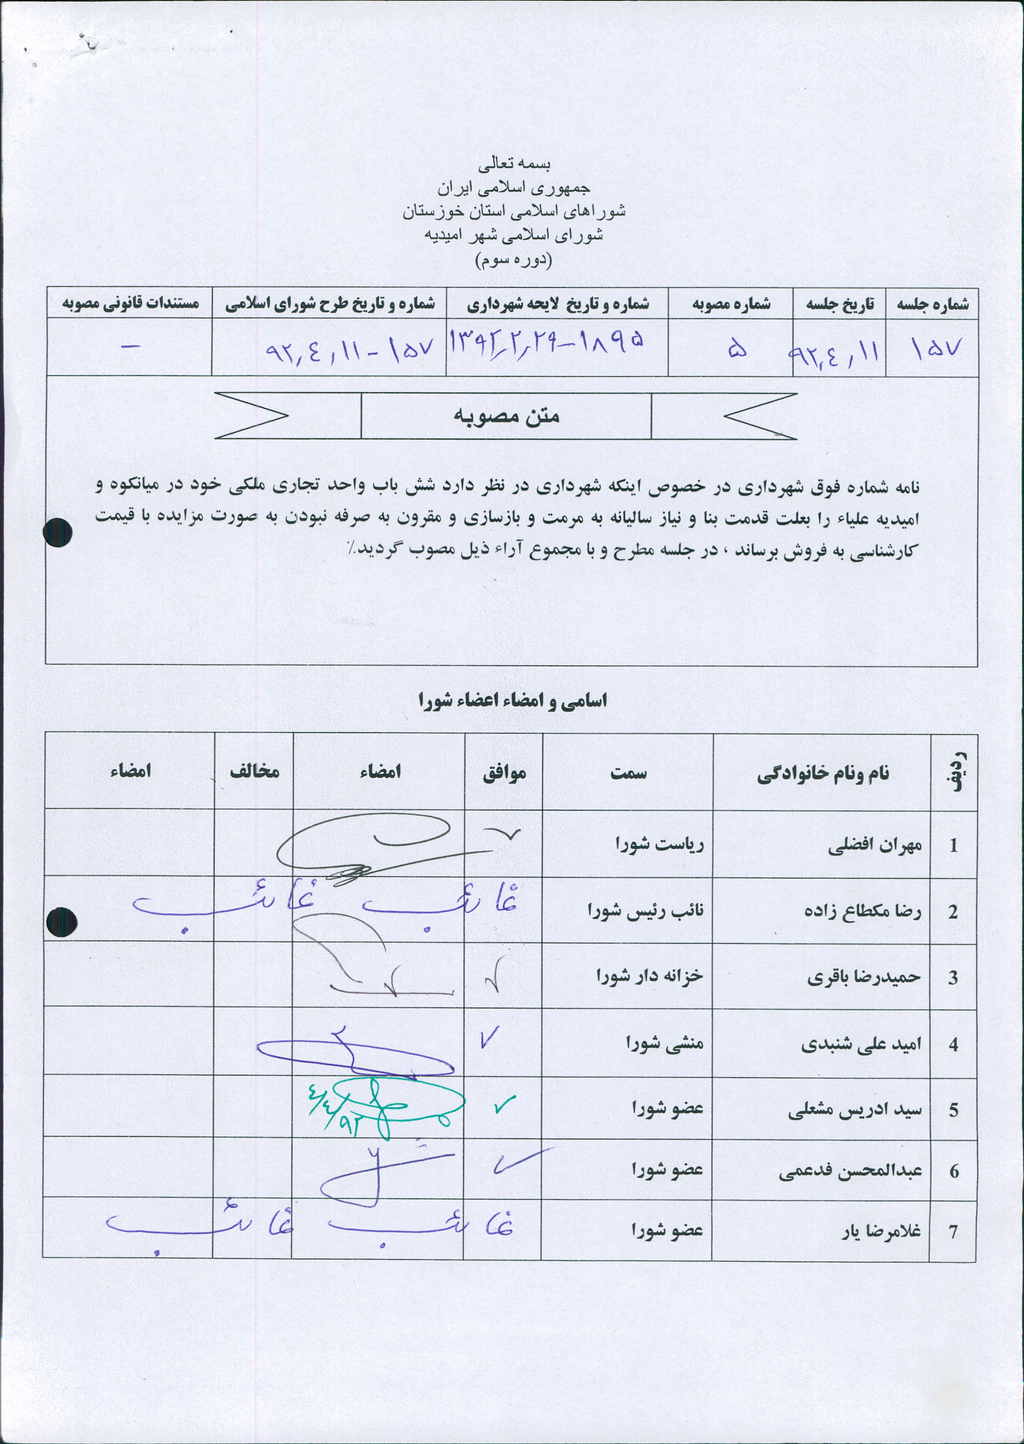 بسمه تعالی
جمهوری اسلامی ایران
شوراهای اسلامی استان خوزستان
شورای اسلامی شهر امیدیه
(دوره سوم)
شماره جلسه تاریخ جلسه شماره مصوبه شماره و تاریخ لایحه شهرداری شماره و تاریخ طرح شورای اسلامی مستندات قانونی مصوبه
۱۵۷ ۹۲,۴,۱۱ ۵ ۱۸۹۵-۱۳۹۲,۲,۲۹ ۱۵۷-۹۲,۴,۱۱ –
متن مصوبه
نامه شماره فوق شهرداری در خصوص اینکه شهرداری در نظر دارد شش باب واحد تجاری ملکی خود در میانکوه و
امیدیه علیاء را بعلت قدمت بنا و نیاز سالیانه به مرمت و بازسازی و مقرون به صرفه نبودن به صورت مزایده با قیمت
کارشناسی به فروش برساند ، در جلسه مطرح و با مجموع آراء ذیل مصوب گردید.٪
اسامی و امضاء اعضاء شورا
ردیف نام ونام خانوادگی سمت موافق امضاء مخالف امضاء
1 مهران افضلی ریاست شورا ✓
2 رضا مکطاع زاده نائب رئیس شورا غائب غائب
3 حمیدرضا باقری خزانه دار شورا ✓
4 امید علی شنبدی منشی شورا ✓
5 سید ادریس مشعلی عضو شورا ✓ ۹۲/۴/۴
6 عبدالمحسن فدعمی عضو شورا ✓
7 غلامرضا یار عضو شورا غائب غائب